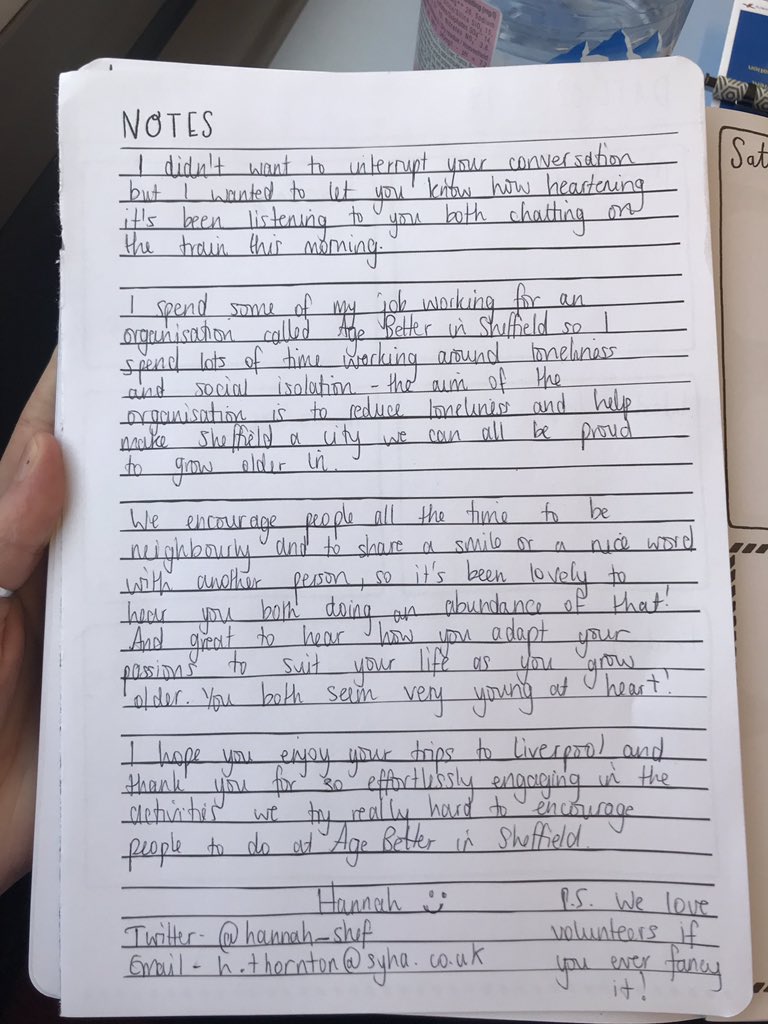 NOTES
I didn't want to interrupt your conversation
but I wanted to let you know how heartening
it's been listening to you both chatting on
the train this morning.
I spend some of my job working for an
organisation called Age Better in Sheffield so I
spend lots of time working around loneliness
and social isolation - the aim of the
organisation is to reduce loneliness and help
make Sheffield a city we can all be proud
to grow older in.
We encourage people all the time to be
neighbourly and to share a smile or a nice word
with another person, so it's been lovely to
hear you both doing an abundance of that!
And great to hear how you adapt your
passions to suit your life as you grow
older. You both seem very young at heart!
I hope you enjoy your trips to Liverpool and
thank you for so effortlessly engaging in the
activities we try really hard to encourage
people to do at Age Better in Sheffield.
Hannah :)
Twitter - @hannah_shef
Email - h.thornton@syha.co.uk
P.S. We love
volunteers if
you ever fancy
it!
Sat